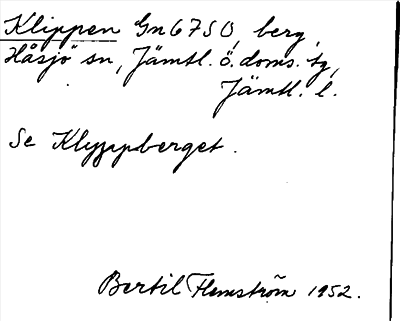 Klippen Gn 67SO, berg,
Håsjö sn, Jämtl. ö. doms. tg,
Jämtl. l.
Se Klyppberget.
Bertil Flemström 1952.